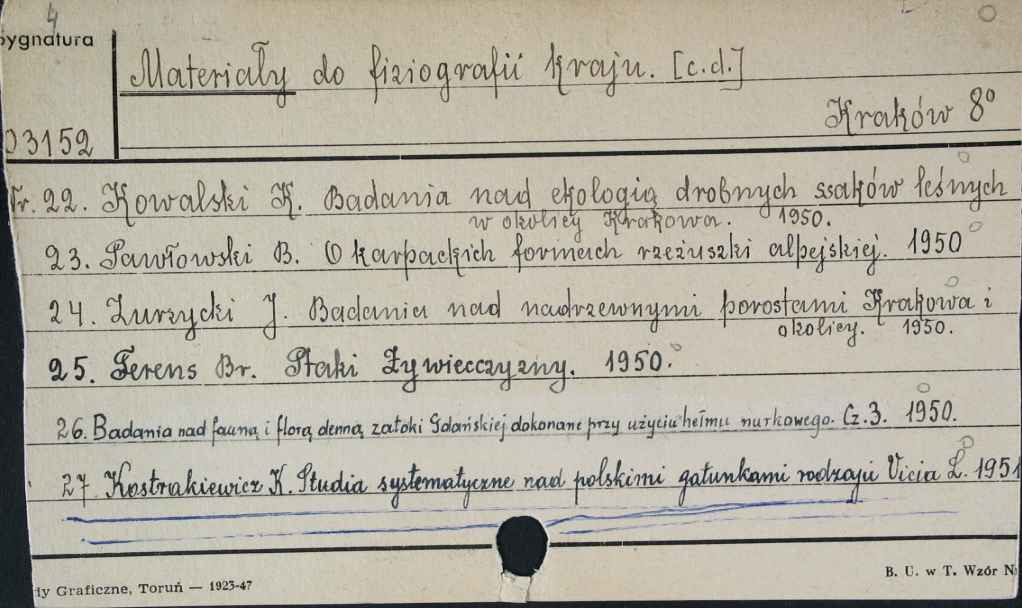 4
Sygnatura
Materiały do fizjografii kraju. [c.d.]
Kraków 8°
03152
Nr. 22. Kowalski K. Badania nad ekologią drobnych ssaków leśnych
w okolicy Krakowa. 1950.
23. Pawłowski B. O karpackich formach rzeżuszki alpejskiej. 1950
24. Żurzycki J. Badania nad nadrzewnymi porostami Krakowa i
okolicy. 1950.
25. Ferens Br. Ptaki Żywiecczyzny. 1950.
26. Badania nad fauną i florą denną zatoki Gdańskiej dokonane przy użyciu hełmu nurkowego. Cz.3. 1950.
27 Kostrakiewicz K. Studia systematyczne nad polskimi gatunkami rodzaju Vicia L. 1951
dy Graficzne, Toruń — 1923-47
B. U. w T. Wzór N